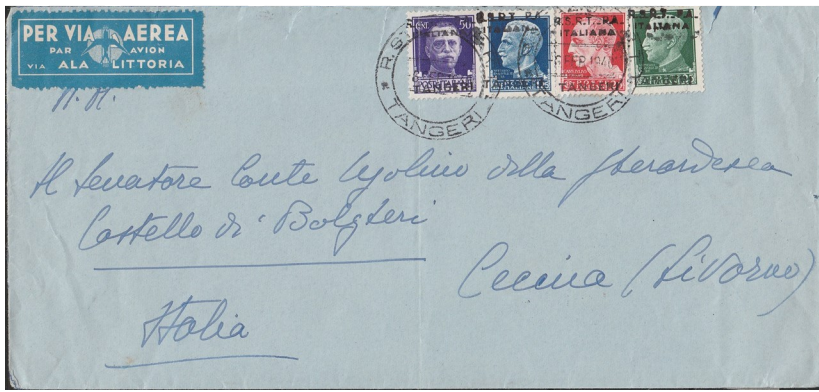 PER VIA AEREA
PAR AVION
VIA ALA LITTORIA
CENT 50
R.S.R.T. P.A.
ITALIANA
TANGERI
R.S.R.T. P.A.
ITALIANA
TANGERI
TANGERI
TANGERI
Il Senatore Conte Ugolino della Gherardesca
Castello di Bolgheri
Cecina (Livorno)
Italia